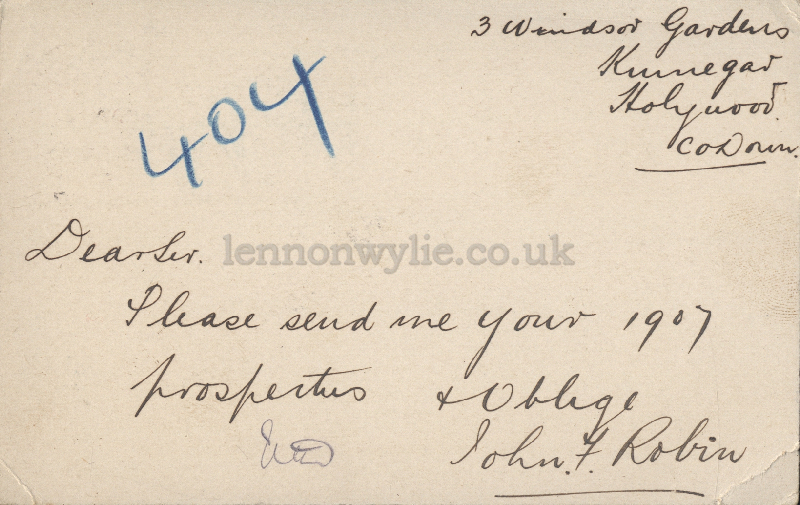 3 Windsor Gardens
Kinnegar
Holywood.
Co Down.
404
Dear Sir.
lennonwylie.co.uk
Please send me your 1907
prospectus & Oblige
John. F. Robin